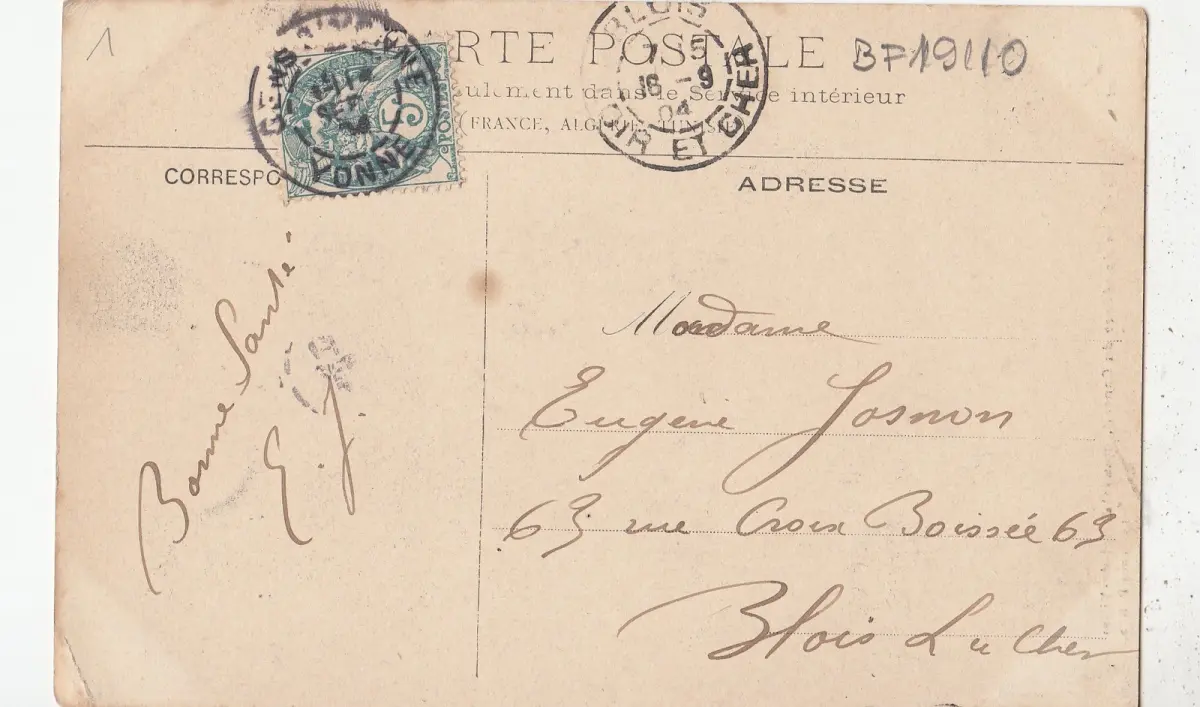 1
CARTE POSTALE
BF19110
Seulement dans le Service intérieur
(FRANCE, ALGÉRIE, TUNISIE)
SENS
YONNE
5
POSTES
BLOIS
7 5
16 -9
04
LOIR ET CHER
CORRESPO
ADRESSE
Bonne Santé
E. J.
Madame
Eugène Josnon
63 rue Croix Boissée 63
Blois L et Cher